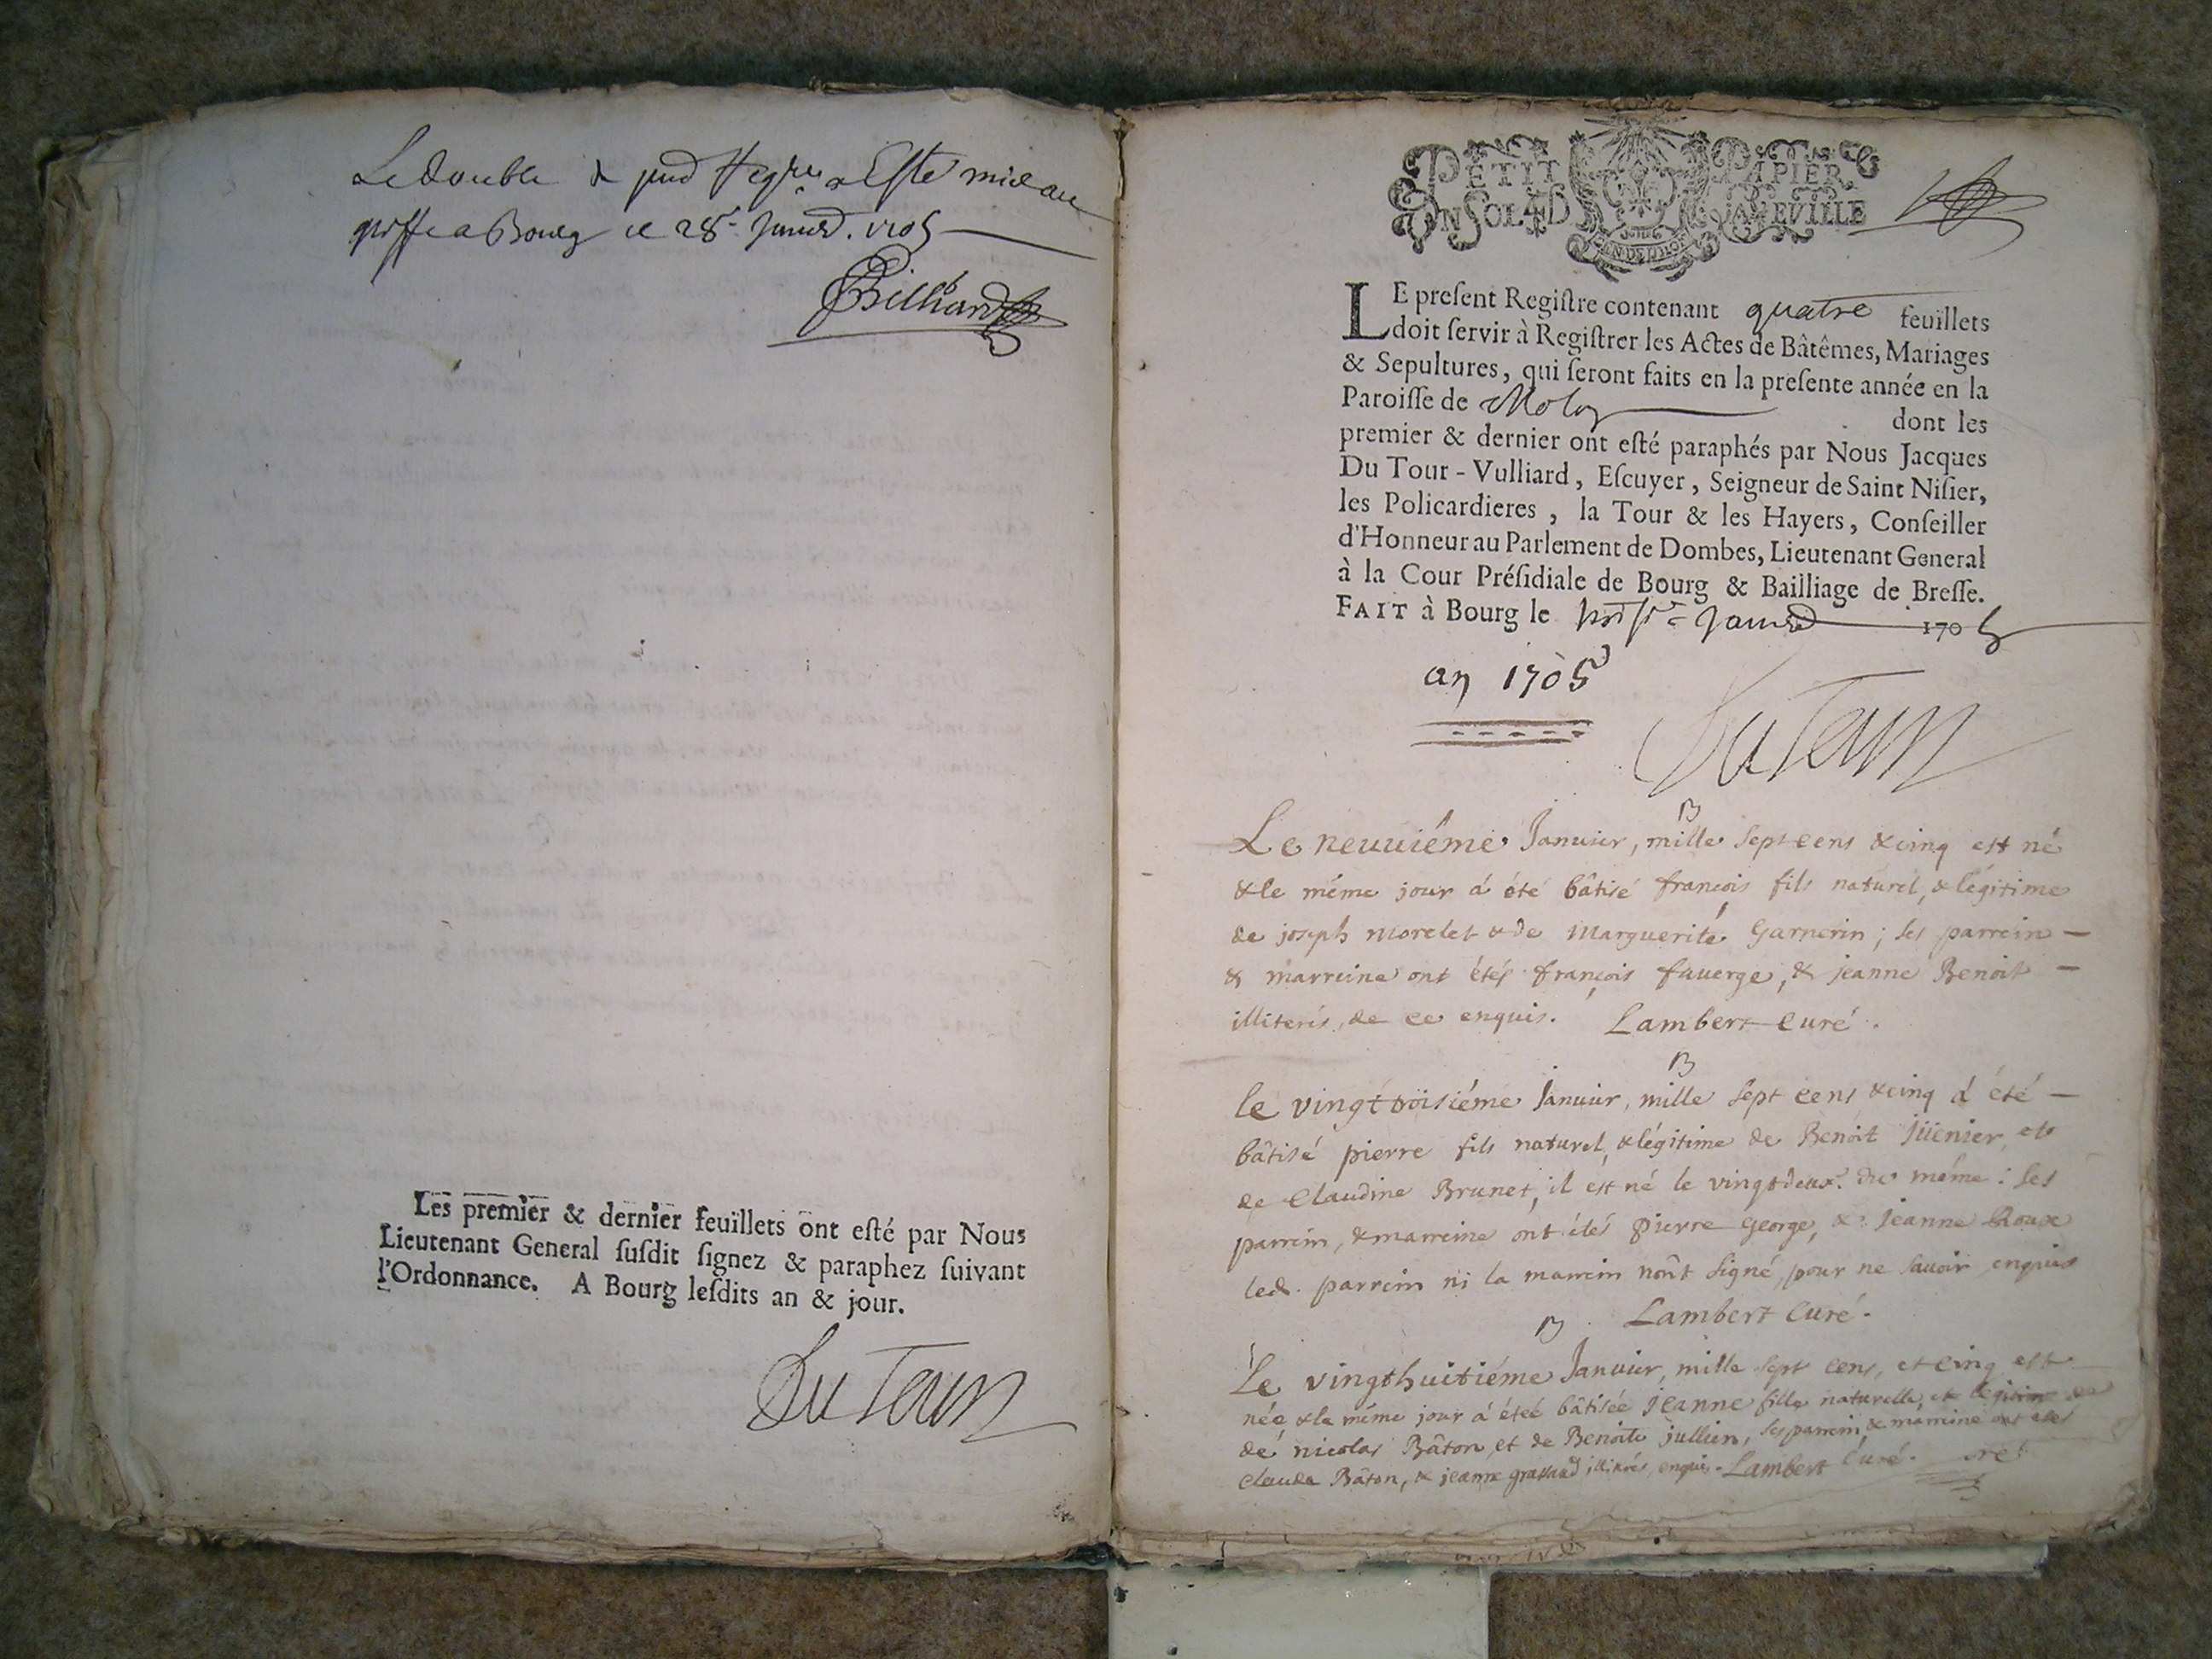 Le double du pnt Regre a Esté mis au
greffe a Bourg ce 28e Janvr. 1705
Billiard
Les premier & dernier feuillets ont eſté par Nous
Lieutenant General ſuſdit ſignez & paraphez ſuivant
l'Ordonnance. A Bourg leſdits an & jour.
Du Tour
PETIT PAPIER
UN SOL 4 D LA FEVILLE
GEN DE DIION
LE preſent Regiſtre contenant quatre feuillets
doit ſervir à Regiſtrer les Actes de Bâtêmes, Mariages
& Sepultures, qui ſeront faits en la preſente année en la
Paroiſſe de dont les
premier & dernier ont eſté paraphés par Nous Jacques
Du Tour - Vulliard, Eſcuyer, Seigneur de Saint Niſier,
les Policardieres, la Tour & les Hayers, Conſeiller
d'Honneur au Parlement de Dombes, Lieutenant General
à la Cour Préſidiale de Bourg & Bailliage de Breſſe.
FAIT à Bourg le Janvr 1705
an 1705
Du Tour
B
Le neuuiéme Januier, mille sept cens & cinq est né
& le méme jour á été bâtisé françois fils naturel, & légitime
de joseph morelet & de Marguerite Garnerin ; ses parrein —
& marreine ont étés françois fauerge, & jeanne Benoit —
illiterés, de ce enquis. Lambert Curé.
B
le vingt troisiéme Januier, mille sept cens & cinq á été —
bâtisé pierre fils naturel, & légitime de Benoit jüenier et
de Claudine Brunet, il est né le vingtdeux. du méme : ses
parrein, & marreine ont étés pierre George, & jeanne Roux
led. parrein ni la marrein nont signé, pour ne sauoir enquis
Lambert Curé.
B
Le vingthuitiéme Januier, mille sept cens, et cinq est
née & le méme jour á éteé bâtisée jeanne fille naturelle, et légitime de
de nicolas Bâton et de Benoite jullien, ses parrein & marreine ont étés
Claude Bâton, & jeanne illiterés, enquis. Lambert Curé.